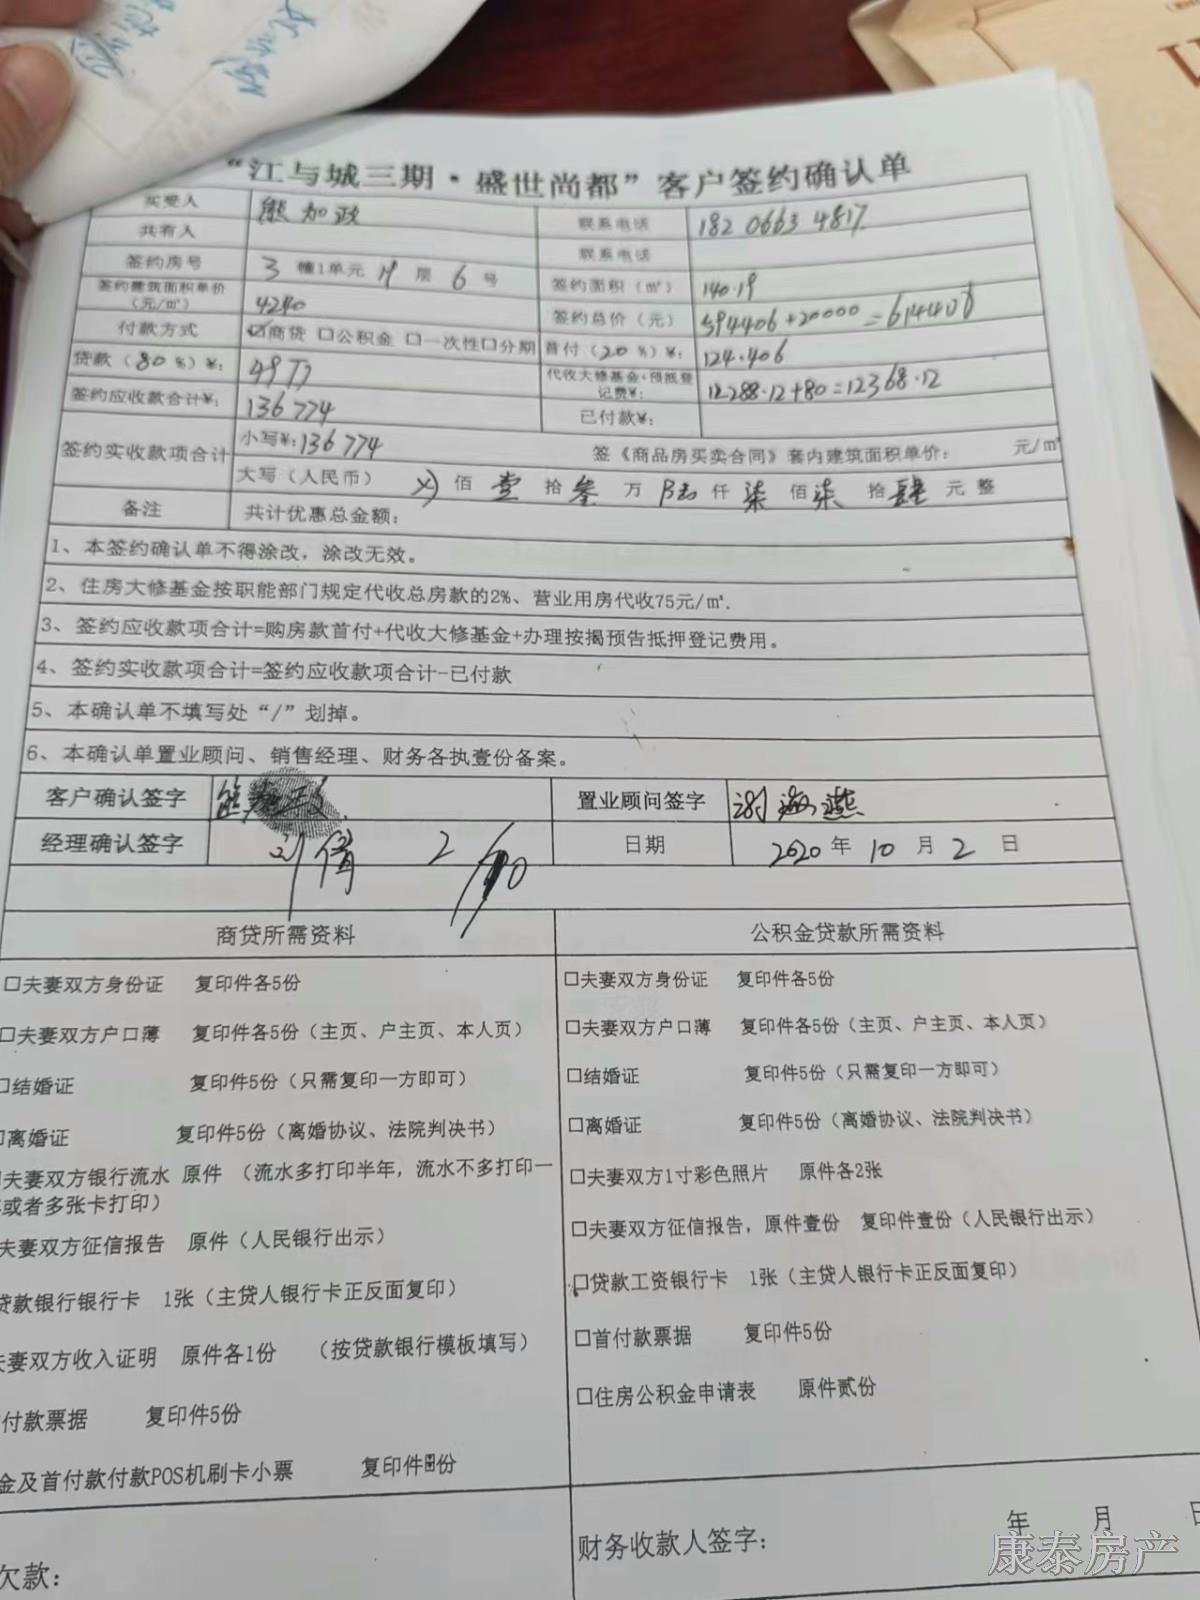 “江与城三期·盛世尚都”客户签约确认单
买受人 熊加政 联系电话 182 0663 4817
共有人 联系电话
签约房号 3 幢1单元 19 层 6 号 签约面积（㎡） 140.19
签约建筑面积单价（元/㎡） 4240 签约总价（元） 594406+20000=614406
付款方式 ☑商贷 □公积金 □一次性□分期 首付（20%）¥： 124.406
贷款（80%）¥： 49万 代收大修基金+预抵登记费¥： 12288.12+80=12368.12
签约应收款合计¥： 136774 已付款¥：
签约实收款项合计 小写¥：136774 签《商品房买卖合同》套内建筑面积单价： 元/㎡
大写（人民币） 佰 壹 拾 叁 万 陆 仟 柒 佰 柒 拾 肆 元 整
备注 共计优惠总金额：
1、本签约确认单不得涂改，涂改无效。
2、住房大修基金按职能部门规定代收总房款的2%、营业用房代收75元/㎡.
3、签约应收款项合计=购房款首付+代收大修基金+办理按揭预告抵押登记费用。
4、签约实收款项合计=签约应收款项合计-已付款
5、本确认单不填写处“/”划掉。
6、本确认单置业顾问、销售经理、财务各执壹份备案。
客户确认签字 熊加政 置业顾问签字 谢海燕
经理确认签字 刘倩 2/10 日期 2020 年 10 月 2 日
商贷所需资料 公积金贷款所需资料
□夫妻双方身份证 复印件各5份 □夫妻双方身份证 复印件各5份
□夫妻双方户口薄 复印件各5份（主页、户主页、本人页） □夫妻双方户口薄 复印件各5份（主页、户主页、本人页）
□结婚证 复印件5份（只需复印一方即可） □结婚证 复印件5份（只需复印一方即可）
□离婚证 复印件5份（离婚协议、法院判决书） □离婚证 复印件5份（离婚协议、法院判决书）
□夫妻双方银行流水 原件 （流水多打印半年，流水不多打印一
或者多张卡打印） □夫妻双方1寸彩色照片 原件各2张
夫妻双方征信报告 原件（人民银行出示） □夫妻双方征信报告，原件壹份 复印件壹份（人民银行出示）
贷款银行银行卡 1张（主贷人银行卡正反面复印） □贷款工资银行卡 1张（主贷人银行卡正反面复印）
夫妻双方收入证明 原件各1份 （按贷款银行模板填写） □首付款票据 复印件5份
付款票据 复印件5份 □住房公积金申请表 原件贰份
金及首付款付款POS机刷卡小票 复印件 份
欠款： 财务收款人签字： 年 月 日
康泰房产